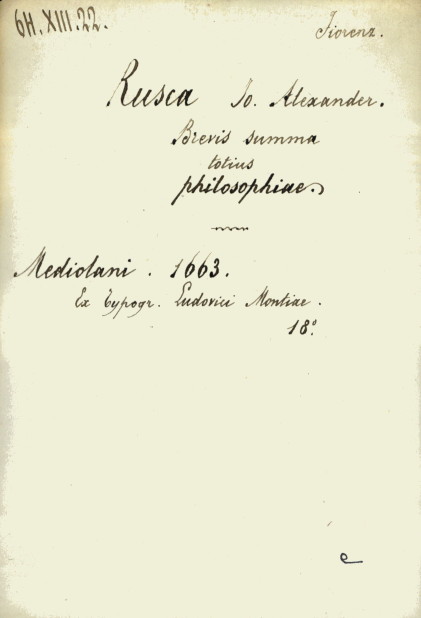 6H.XIII.22.
Fiorenz.
Rusca Io. Alexander.
Brevis summa
totius
philosophiae.
Mediolani. 1663.
Ex typogr. Ludovici Montiae.
18°.
e